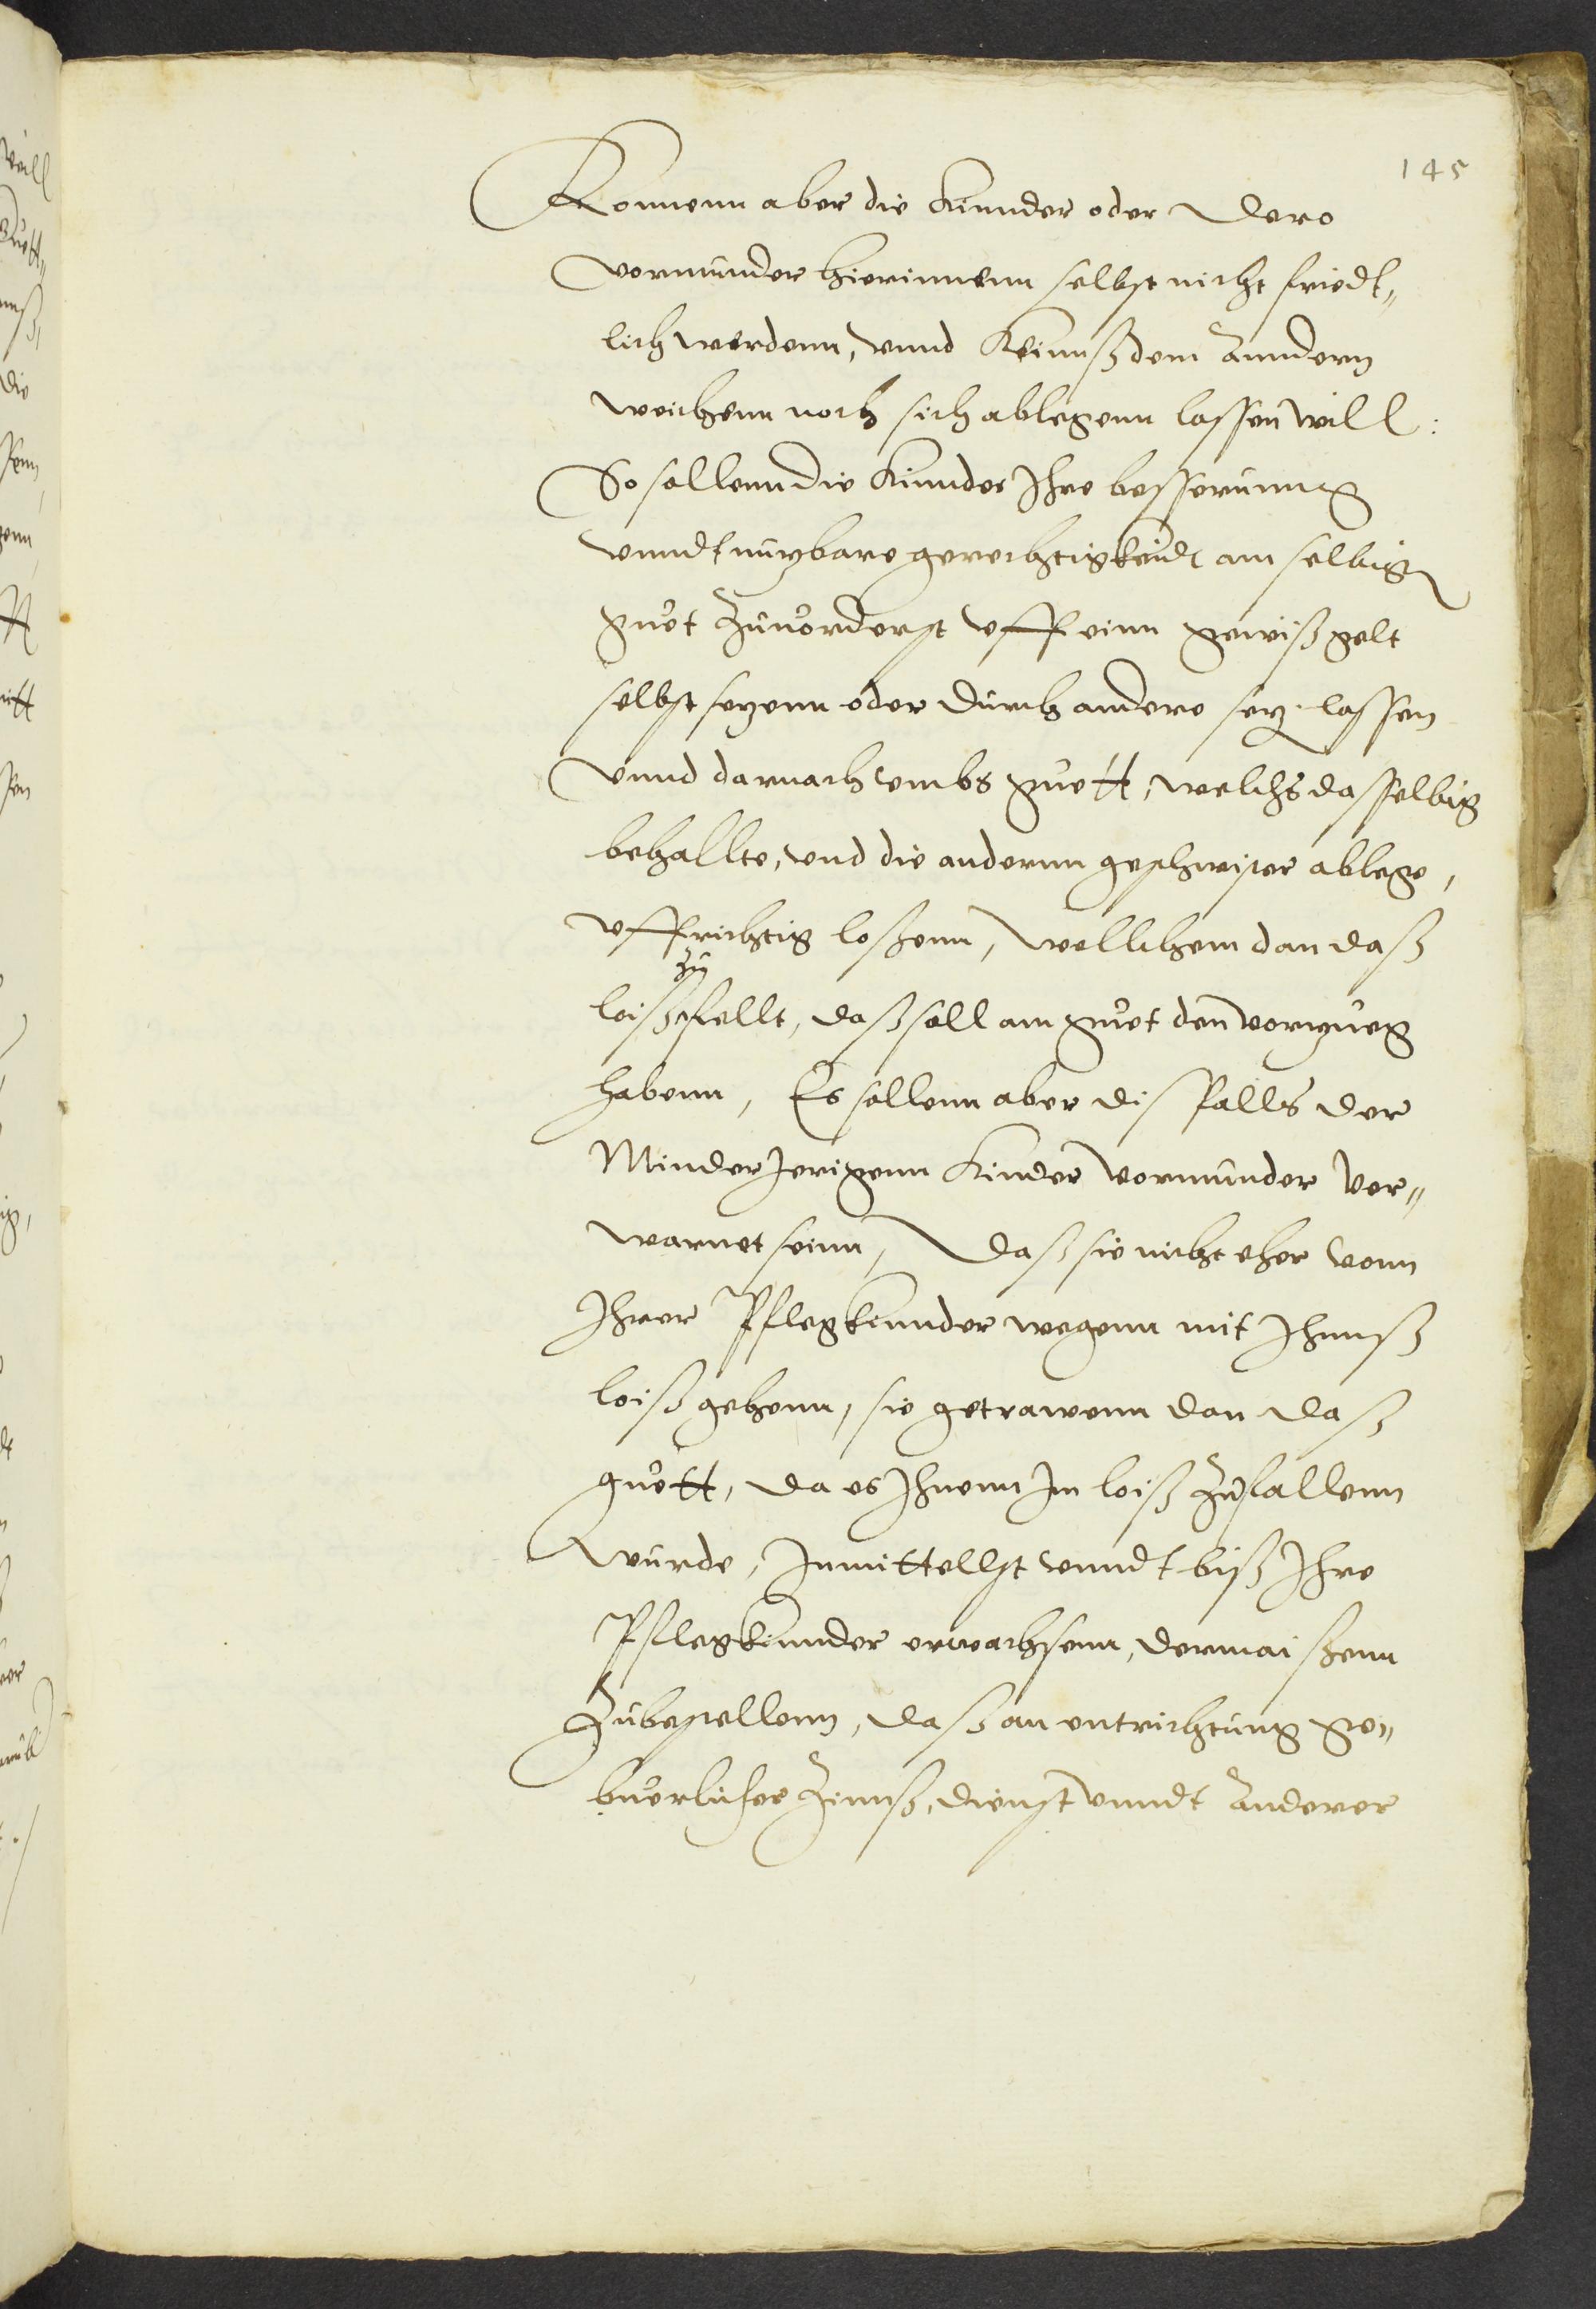 145
Konnenn aber die Kinnder oder Dero
vormunder hierinnenn selbst nicht friedt„
lich werdenn, vnnd Keinnß dem Anndern
weichenn noch sich ablegenn lassen will:
So sollenn die Kinnder Ihre besserunng
vnndt nuzbare gerechtigkeidt am selbig
guet Zuuorderst vff einn gewiß gelt
selbst sezenn oder durch andere sez. lassen
vnnd darnach vmbs guett, welchs dasselbig
behallte, vnd die anderen geschwister ablege,
vffrichtig loßenn, wellchem dan daß
zu
loiß fellt, daß soll am guet den vorzueg
habenn, Es sollenn aber disfalls der
Minder Jerigenn Kinder vormunder ver„
warnet seinn, Daß sie nicht eher vonn
Ihrer Pflegkinnder wegenn mit Ihnnß
loiß gehenn, sie getrawenn dan daß
guett, da es Ihnenn Im loiß Zufallenn
wurde, Inmittellst vnndt biß Ihre
Pflegkinnder erwachsenn, dermaißenn
Zubestellenn, daß an entrichtung ge„
buerlicher Zinnß, dienst vnndt Anderer